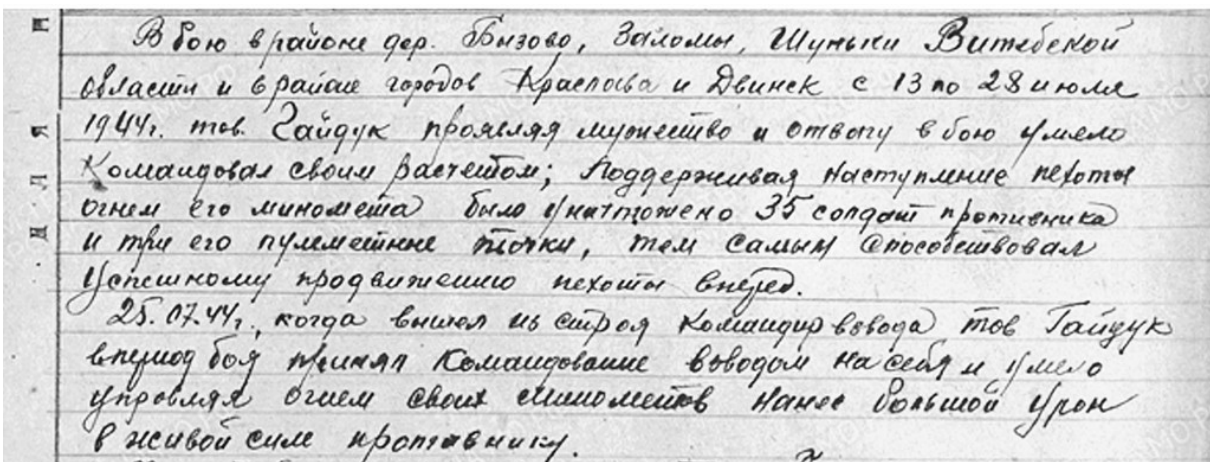 В бою в районе дер. Бызово, Заломы, Шуньки Витебской
области и в районе городов Краслава и Двинск с 13 по 28 июля
1944г. тов. Гайдук проявляя мужество и отвагу в бою умело
командовал своим расчетом; поддерживая наступление пехоты
огнем его миномета было уничтожено 35 солдат противника
и три его пулеметные точки, тем самым способствовал
успешному продвижению пехоты вперед.
25.07.44г., когда вышел из строя командир взвода тов Гайдук
в период боя принял командование взводом на себя и умело
управляя огнем своих минометов нанес большой урон
в живой силе противнику.